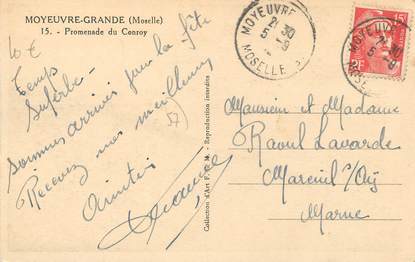 MOYEUVRE-GRANDE (Moselle)
15. - Promenade du Conroy
10 €
Temps
Superbe -
sommes arrivés pour la fête
Recevez nos meilleures
Amitiés
57
Collection d'Art F. G. M. - Reproduction interdite
MOYEUVRE
2 30
5 - 9
MOSELLE
MOYEUVRE
2 30
5 - 9
15F
RF
Monsieur et Madame
Raoul Lavarde
Mareuil s/ Aÿ
Marne